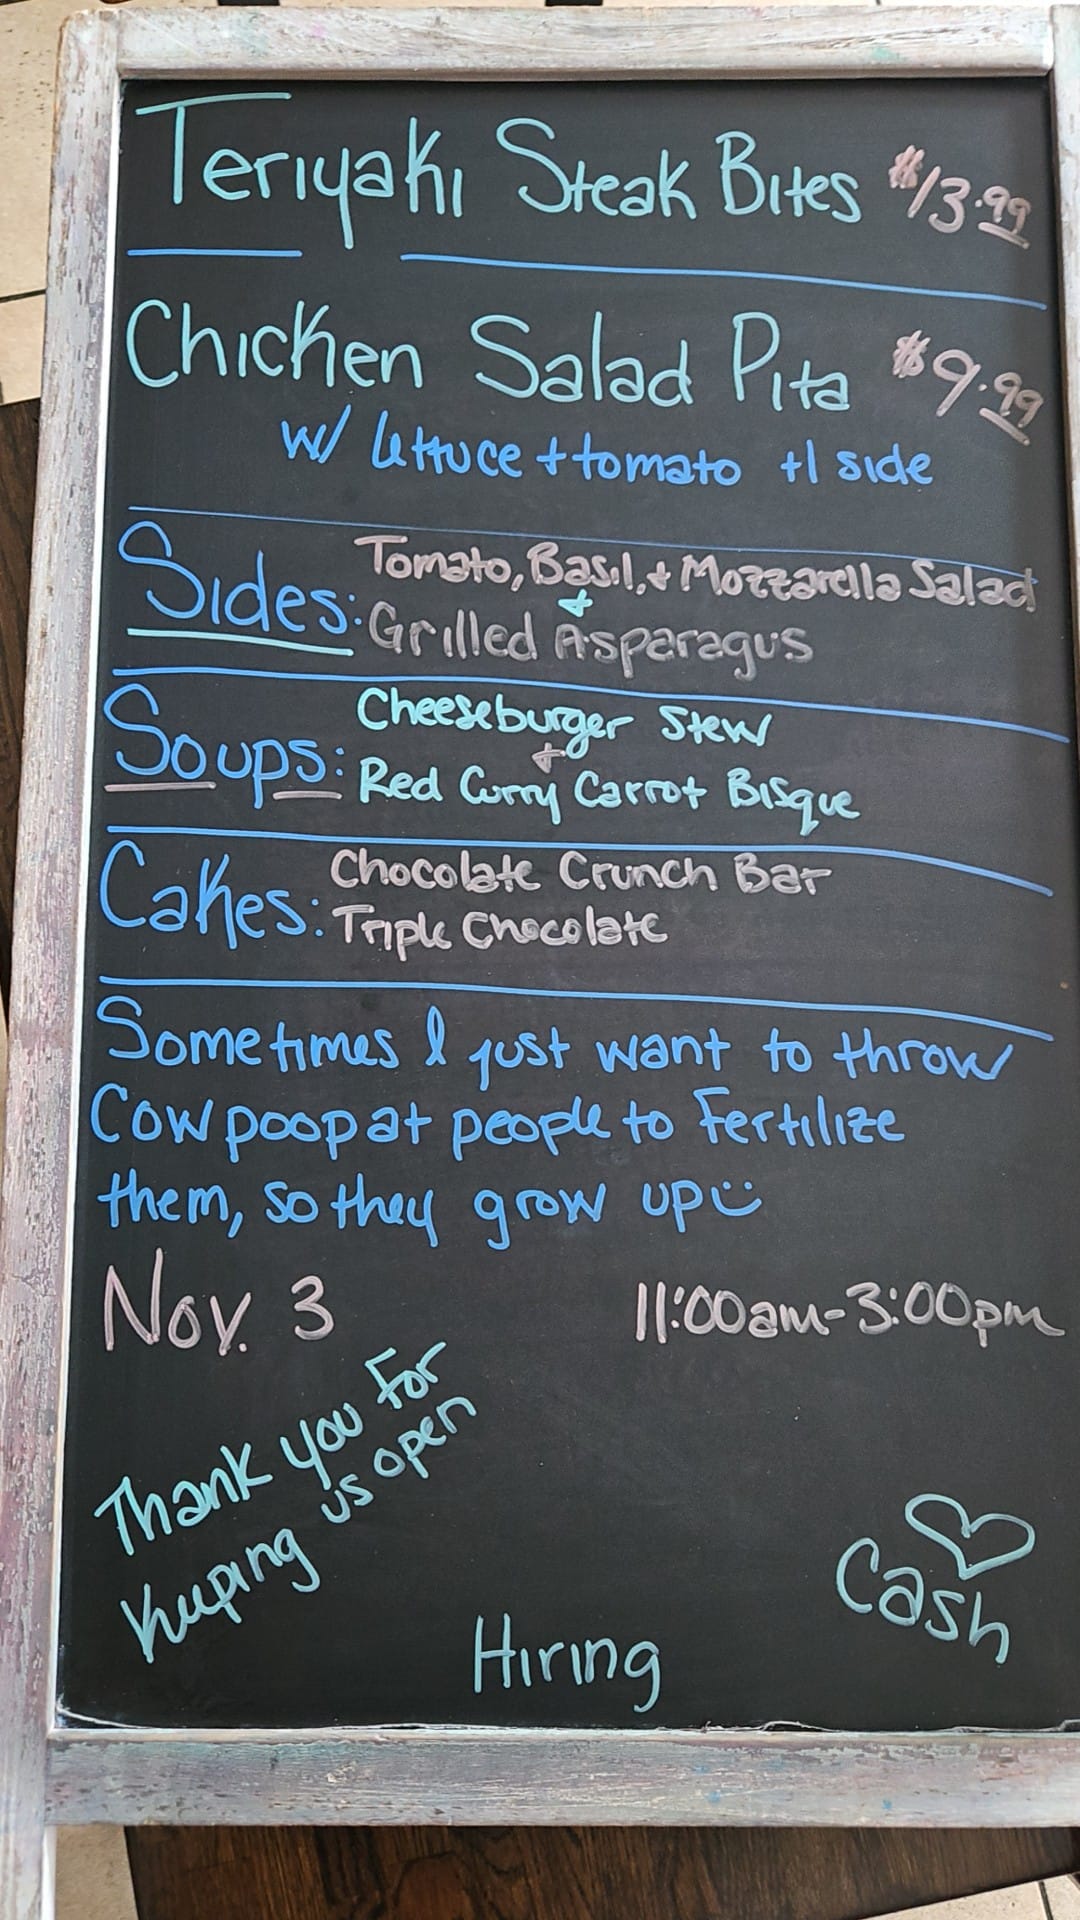 Teriyaki Steak Bites $13.99
Chicken Salad Pita $9.99
w/ lettuce + tomato +1 side
Sides: Tomato, Basil, + Mozzarella Salad
+
Grilled Asparagus
Soups: Cheeseburger Stew
+
Red Curry Carrot Bisque
Cakes: Chocolate Crunch Bar
Triple Chocolate
Sometimes I just want to throw
Cow poop at people to Fertilize
them, so they grow up
Nov. 3 11:00am-3:00pm
Thank you For
Keeping us open
Cash
Hiring